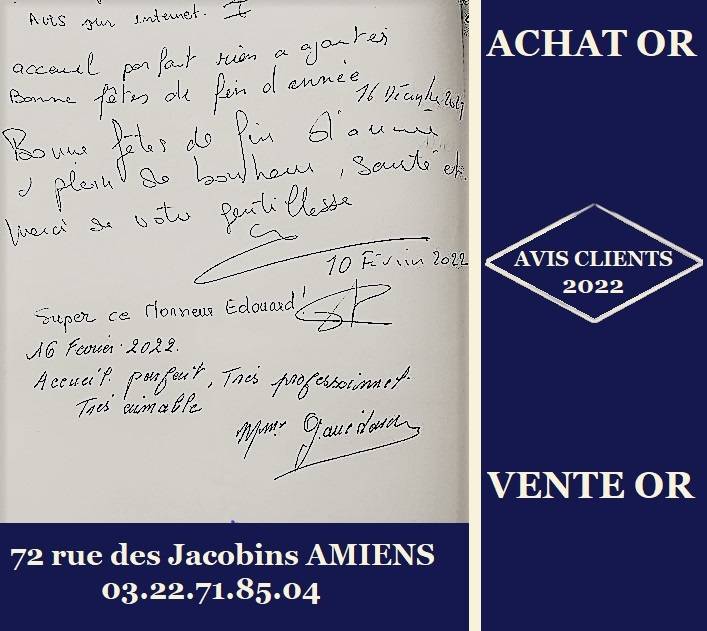 Avis sur internet.
acceuil parfait rien a ajouter
Bonne fêtes de fin d'année
16 Décembre 2021
Bonne fêtes de fin d'année
plein de bonheur, santé et
Merci de votre gentillesse
10 Février 2022
Super ce Monsieur Edouard!
16 Février 2022.
Accueil parfait, Très professionnel.
Très aimable
Mme
72 rue des Jacobins AMIENS
03.22.71.85.04
ACHAT OR
AVIS CLIENTS
2022
VENTE OR